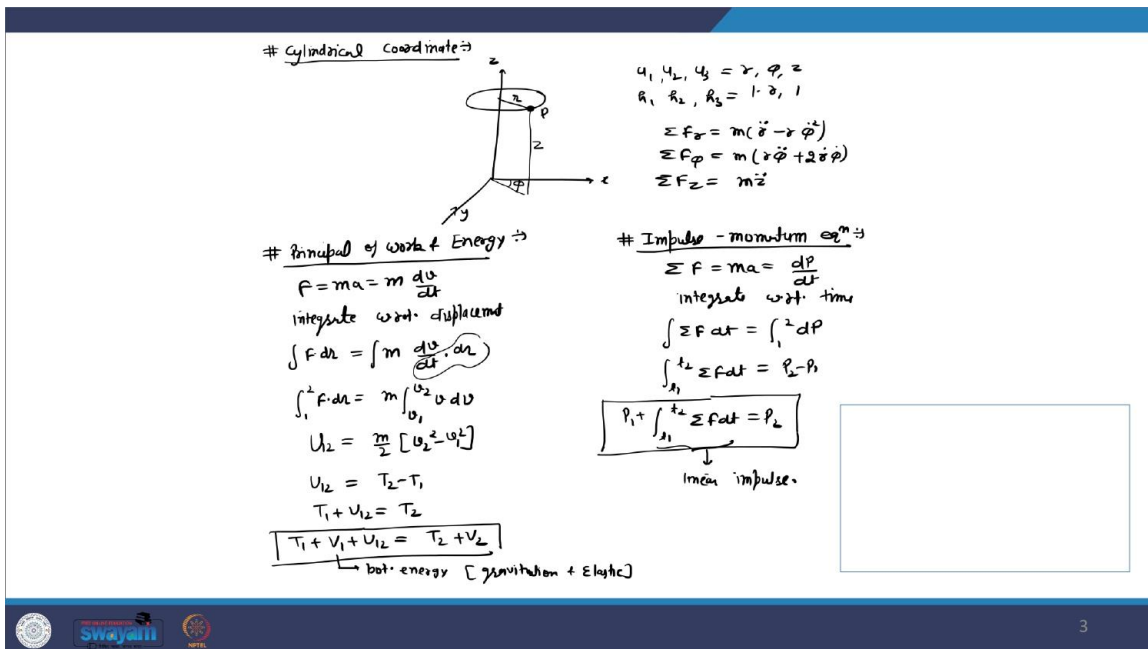 # Cylindrical Coordinate :→
z
r
P
z
φ
x
y
u₁, u₂, u₃ = r, φ, z
h₁ h₂, h₃ = 1· r, 1
ΣFr = m(r̈ - r φ̇²)
ΣFφ = m(rφ̈ + 2ṙφ̇)
ΣFz = mz̈
# Principal of work & Energy :→
F = ma = m dv/dt
integrate w.r.t. displacement
∫ F dr = ∫ m dv/dt · dr
∫₁² F·dr = m ∫ᵥ₁ᵛ² v dv
U₁₂ = m/2 [v₂² - v₁²]
U₁₂ = T₂ - T₁
T₁ + U₁₂ = T₂
T₁ + V₁ + U₁₂ = T₂ + V₂
pot. energy [gravitation + Elastic]
# Impulse - momentum eqⁿ :→
Σ F = ma = dP/dt
integrate w.r.t. time
∫ ΣF dt = ∫₁² dP
∫ₜ₁ᵗ² ΣF dt = P₂ - P₁
P₁ + ∫ₜ₁ᵗ² ΣF dt = P₂
linear impulse.
swayam
NPTEL
3